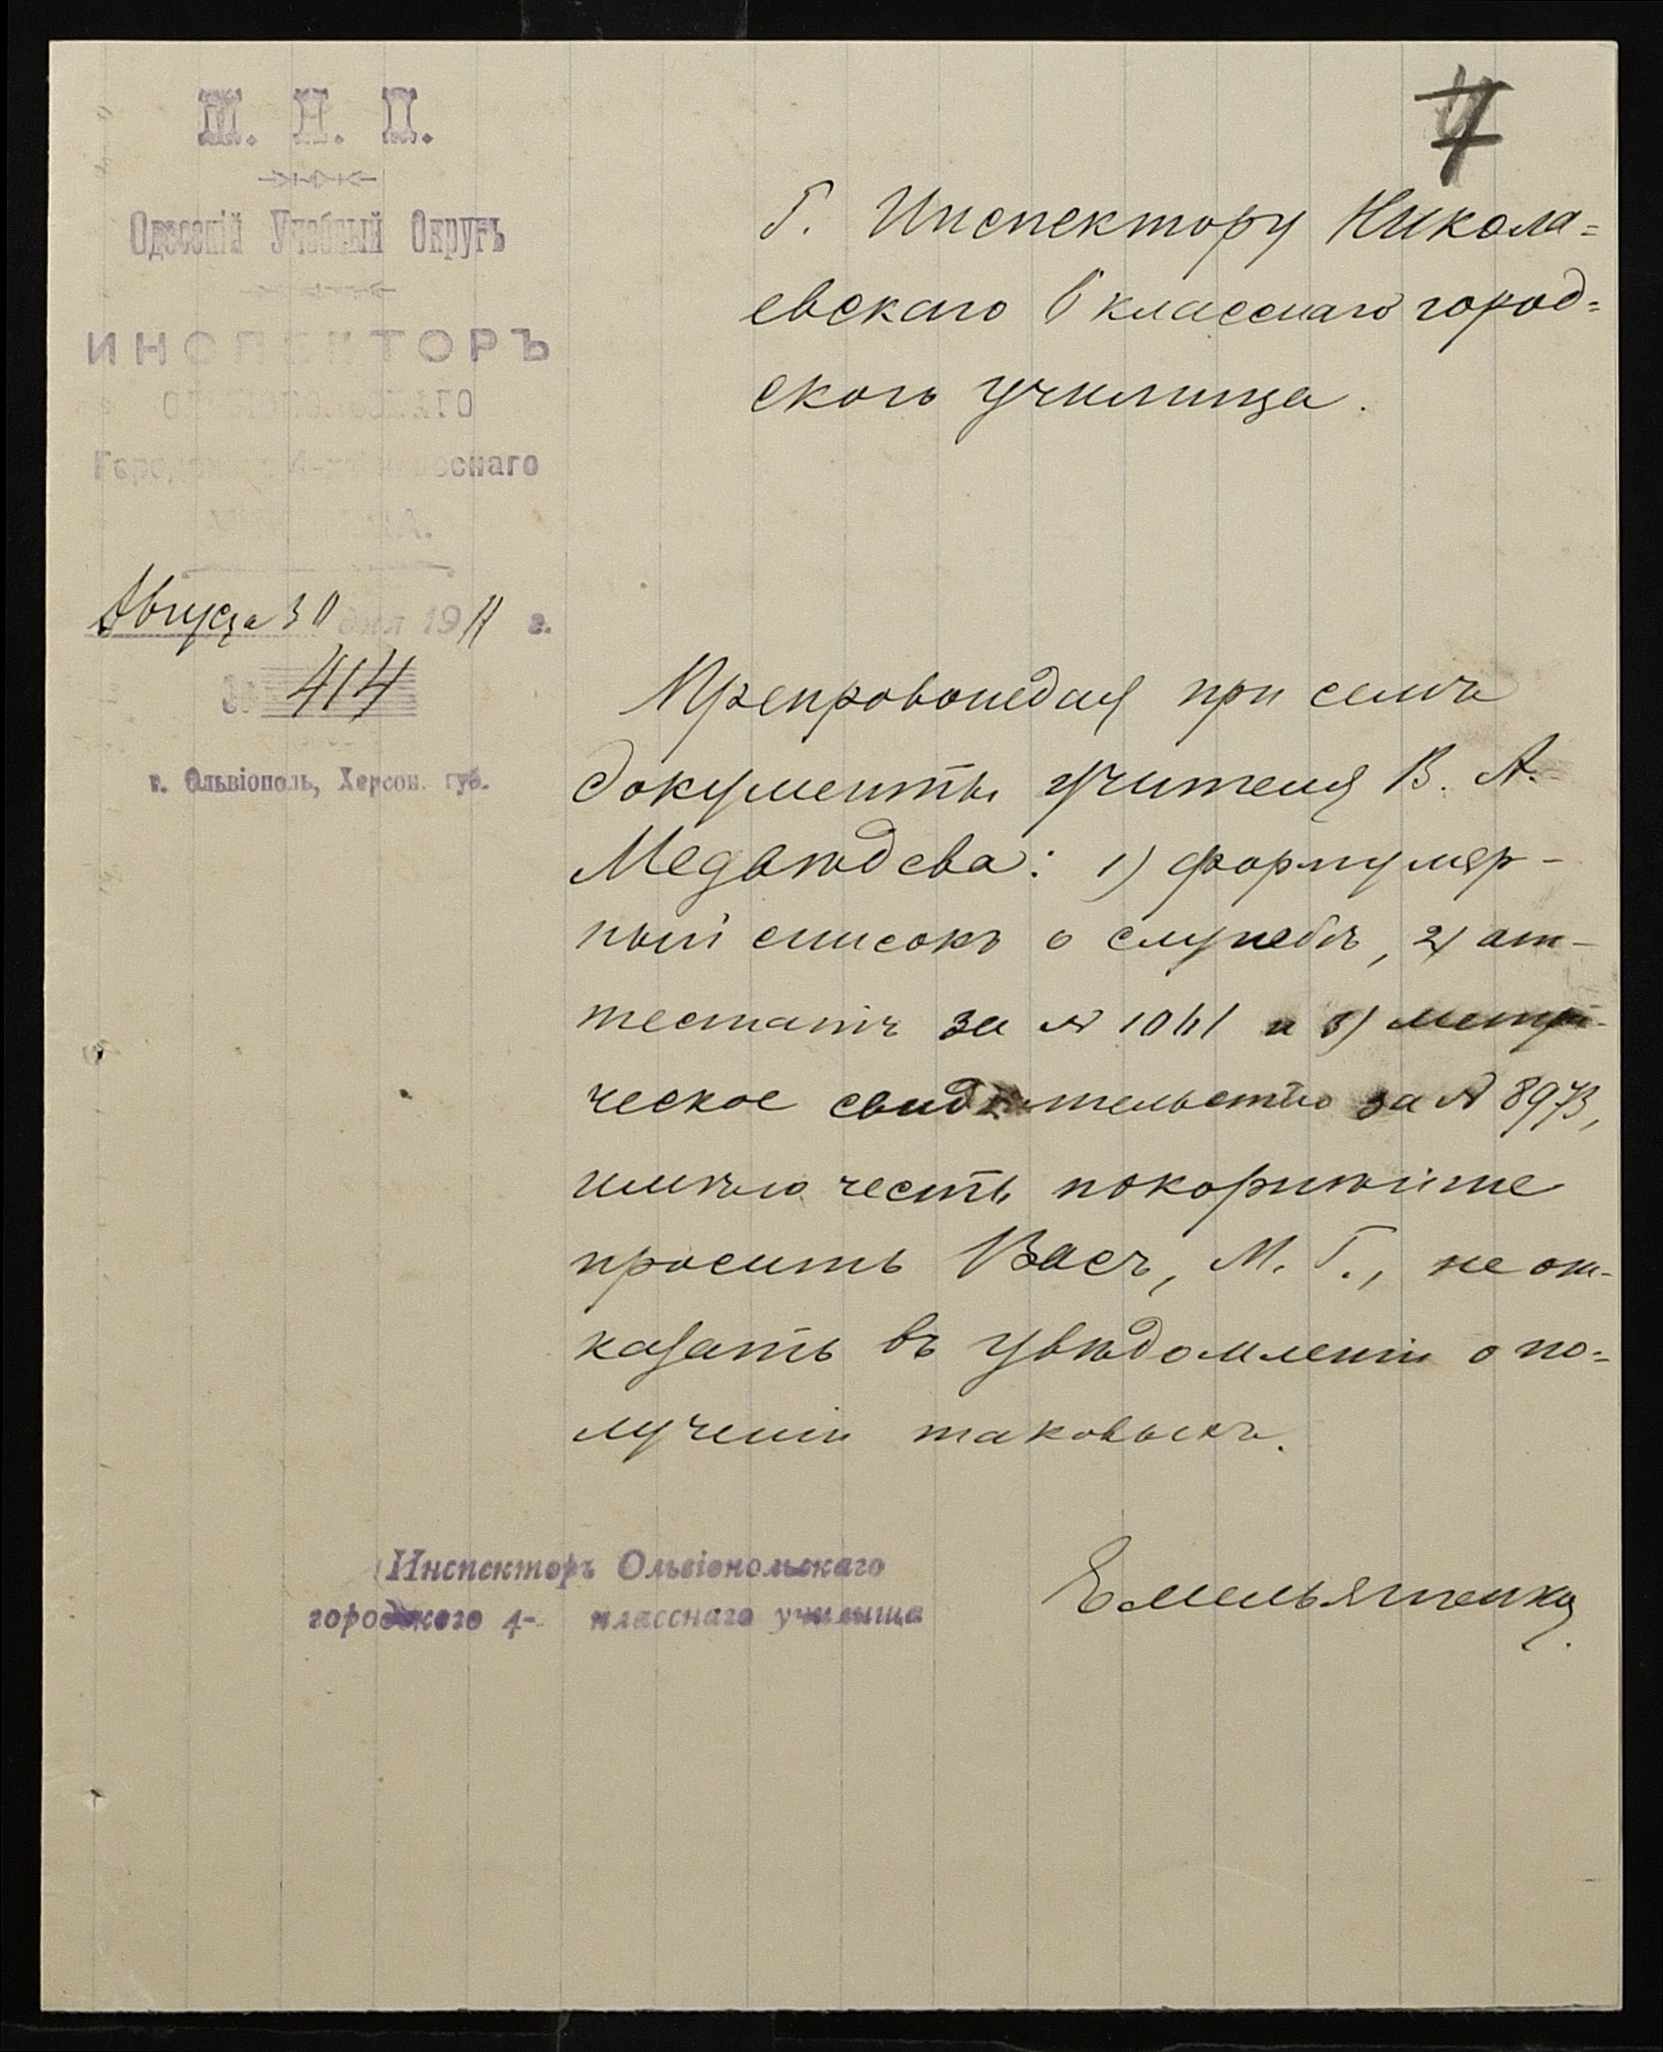 М. Н. П.
Одесскій Учебный Округъ
ИНСПЕКТОРЪ
ОЛЬВІОПОЛЬСКАГО
Городского 4-хъ класснаго
УЧИЛИЩА.
Августа 30 дня 1911 г.
№ 414
г. Ольвіополь, Херсон. губ.
Г. Инспектору Никола=
евскаго 6 класснаго город=
ского училища.
Препровождая при семъ
документы учителя В. А.
Медвѣдева: 1) формуляр-
ный списокъ о службѣ, 2) ат-
тестатъ за № 1041 и 3) метри-
ческое свидѣтельство за № 8973,
имѣю честь покорнѣйше
просить Васъ, М. Г., не от-
казать въ увѣдомленіи о по=
лученіи таковыхъ.
Инспекторъ Ольвіопольскаго
городского 4- класснаго училища
Емельяненко.